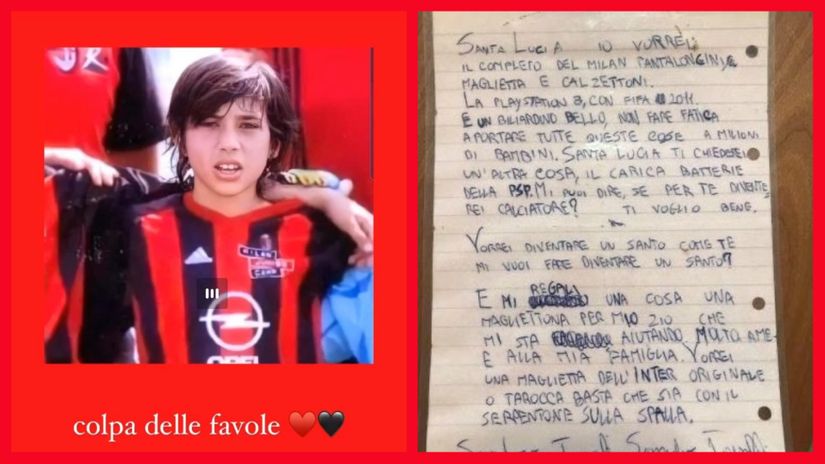 MILAN
JUNIOR
CAMP
adidas
OPEL
colpa delle favole ❤️🖤
SANTA LUCIA IO VORREI
IL COMPLETO DEL MILAN PANTALONCINI,
MAGLIETTA E CALZETTONI.
LA PLAYSTATION 3, CON FIFA 2011.
E UN BILIARDINO BELLO, NON FARE FATICA
A PORTARE TUTTE QUESTE COSE A MILIONI
DI BAMBINI. SANTA LUCIA TI CHIEDEREI
UN'ALTRA COSA, IL CARICA BATTERIE
DELLA PSP. MI PUOI DIRE, SE PER TE DIVENTE-
REI CALCIATORE? TI VOGLIO BENE.
VORREI DIVENTARE UN SANTO COME TE
MI VUOI FARE DIVENTARE UN SANTO?
E MI REGALI UNA COSA UNA
MAGLIETTONA PER MIO ZIO CHE
MI STA AIUTANDO MOLTO A ME
E ALLA MIA FAMIGLIA. VORREI
UNA MAGLIETTA DELL'INTER ORIGINALE
O TAROCCA BASTA CHE SIA CON IL
SERPENTONE SULLA SPALLA.